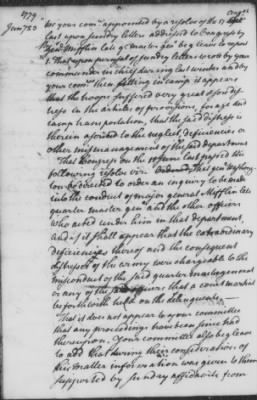 1779.
Jany 23
for your comtee appointed by a resolve of the 17 Augt
last upon sundry letters addressed to Congress by
genl Mifflin late qr master genl beg leave to report
1. That upon perusal of sundry letters wrote by your
commander in chief during last winter and by
your comtee then sitting in camp it appears
that the troops suffered very great & sore dis-
tress in the articles of provisions, forage and
camp transportation, that the said distress is
therein ascribed to the neglect, deficiencies or
other mismanagement of the said departments
That Congress on the 11 June last passed the
following resolve viz. That genl Washing-
ton be directed to order an enquiry to be made
into the conduct of major general Mifflin late
quarter master gen and the other officers
who acted under him in that department,
and if it shall appear that the extraordinary
deficiencies thereof and the consequent
distresses of the army were chargeable to the
misconduct of the said quartermaster general
or any of the said officers that a court martial
be forthwith held on the delinquents
That it does not appear to your committee
that any proceedings have been since had
thereupon. Your committee also beg leave
to add that during their consideration of
this matter information was given to them
supported by sundry affidavits from